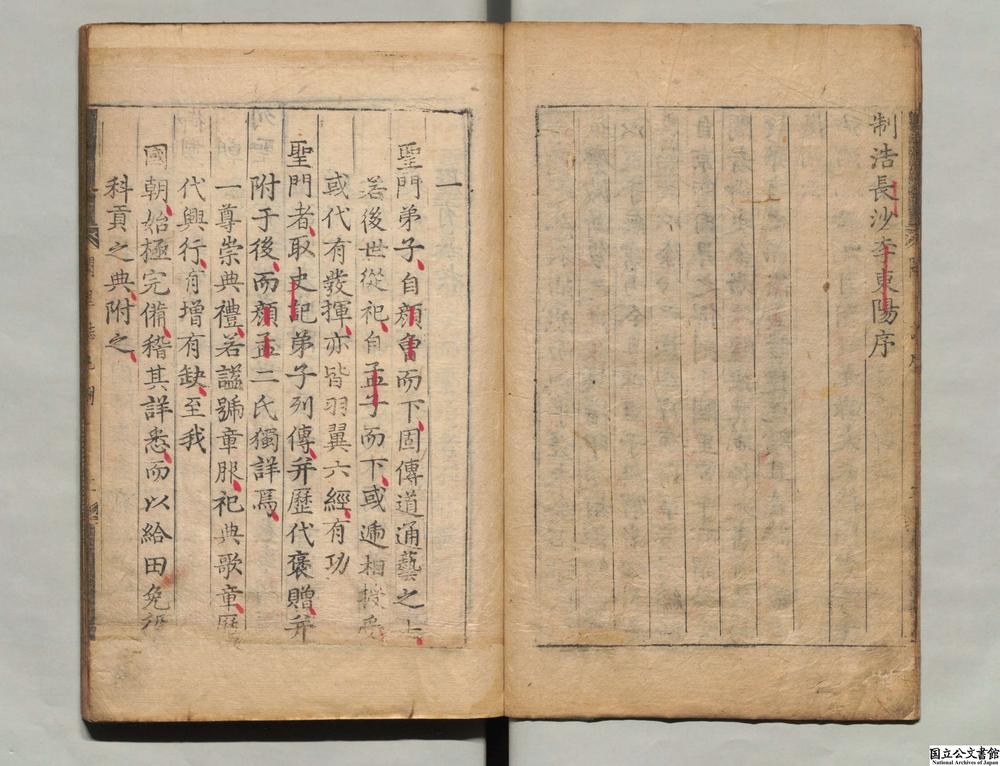 制浩長沙李東陽序
一
聖門弟子自顔曾而下固傳道通藝之士
若後世從祀自孟子而下或逓相授受
或代有發揮亦皆羽翼六經有功
聖門者取史記弟子列傳并歷代褒贈并
附于後而顔孟二氏獨詳焉
一尊崇典禮若謚號章服祀典歌章歷
代興行有增有缺至我
國朝始極完備稽其詳悉而以給田免役
科貢之典附之
国立公文書館
National Archives of Japan